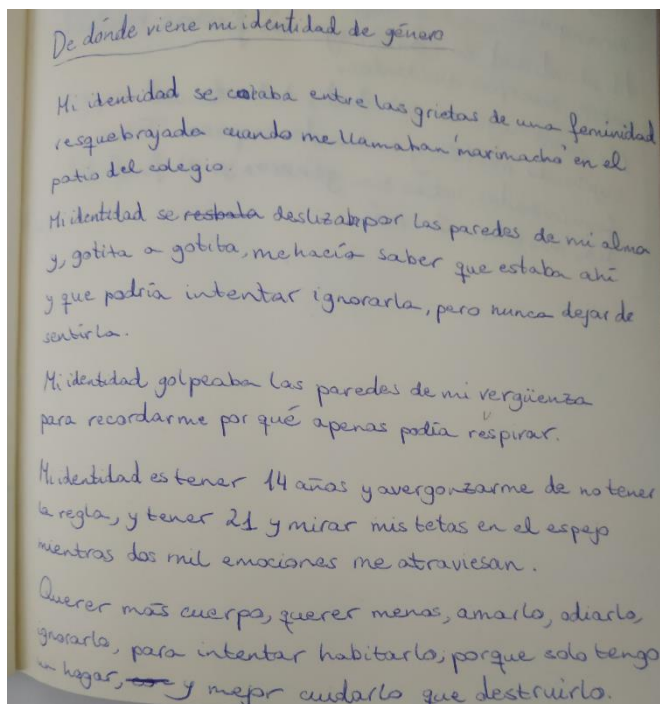 De dónde viene mi identidad de género
Mi identidad se colaba entre las grietas de una feminidad
resquebrajada cuando me llamaban 'marimacho' en el
patio del colegio.
Mi identidad se resbala deslizaba por las paredes de mi alma
y, gotita a gotita, me hacía saber que estaba ahí
y que podría intentar ignorarla, pero nunca dejar de
sentirla.
Mi identidad golpeaba las paredes de mi vergüenza
para recordarme por qué apenas podía respirar.
Mi identidad es tener 14 años y avergonzarme de no tener
la regla, y tener 21 y mirar mis tetas en el espejo
mientras dos mil emociones me atraviesan.
Querer más cuerpo, querer menos, amarlo, odiarlo,
ignorarlo, para intentar habitarlo; porque solo tengo
un hogar, y mejor cuidarlo que destruirlo.